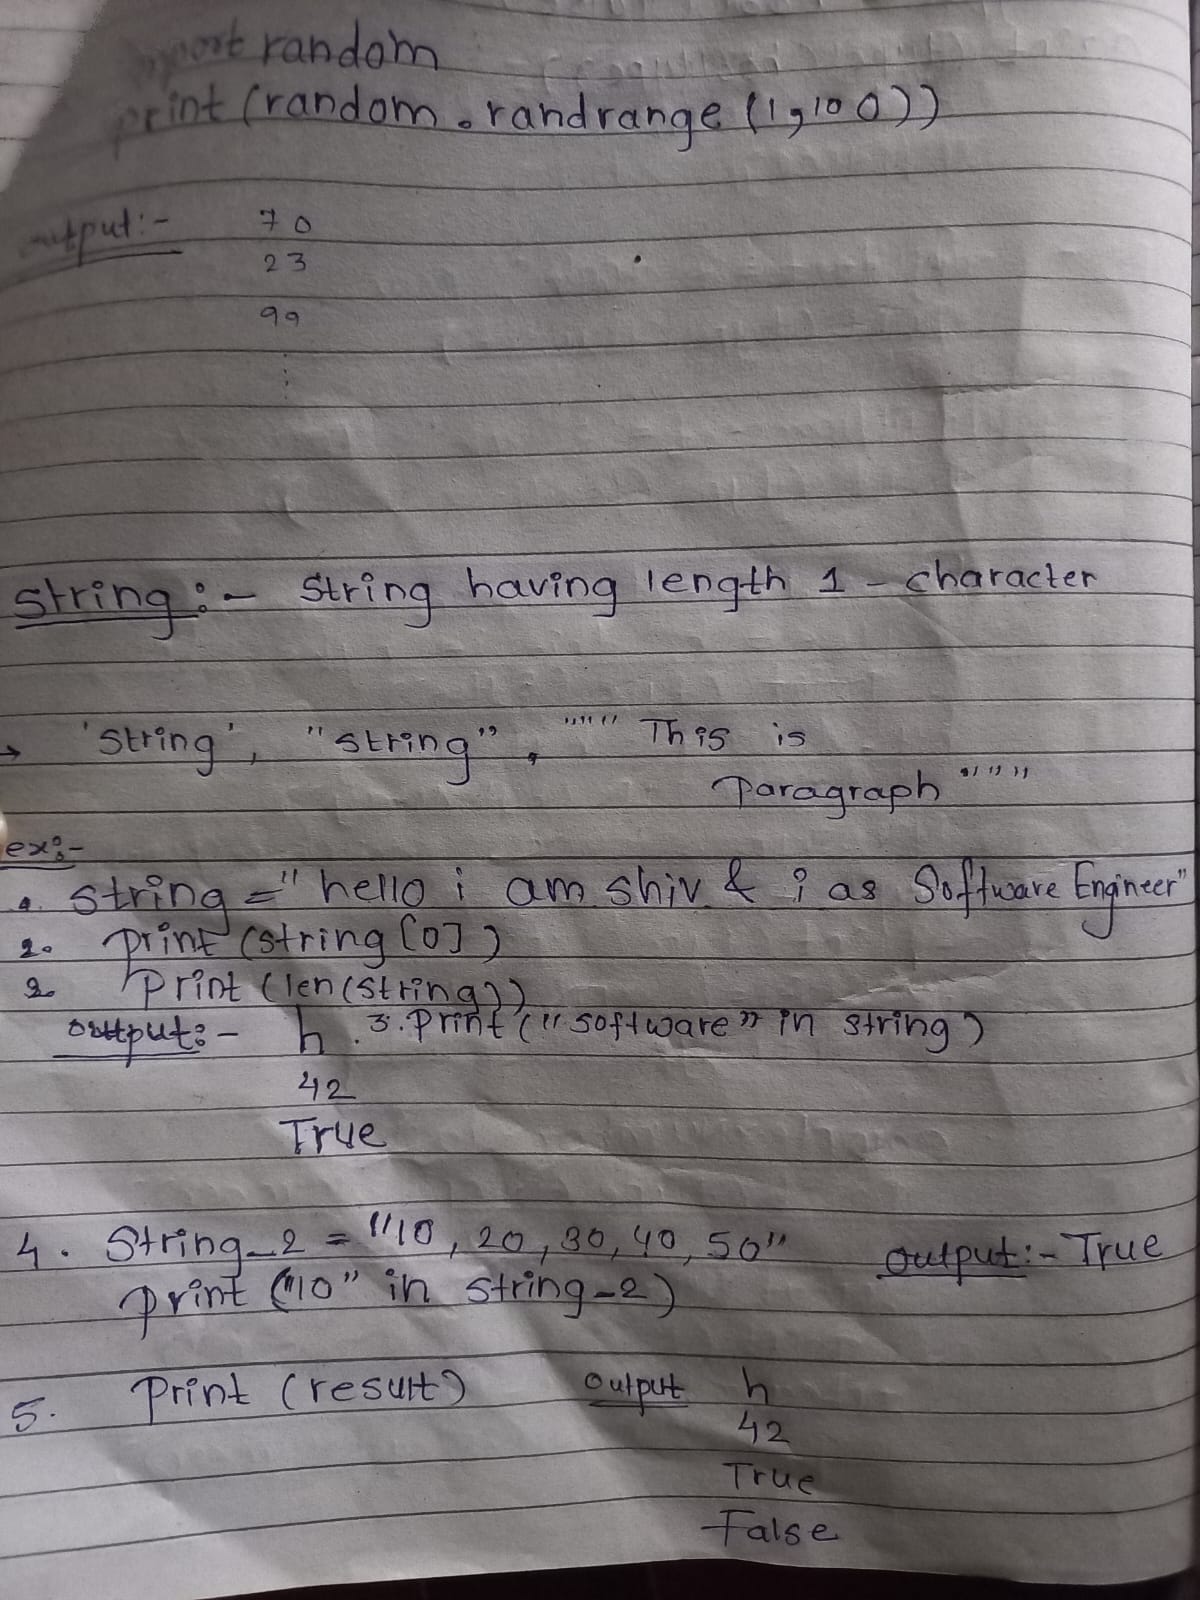 import random
print (random.randrange (1,100))
output:- 70
23
99
String:- String having length 1 - character
→ 'String', "string", """ This is
Paragraph """
ex:-
1. string = " hello i am shiv & i as Software Engineer"
2. print (string [0])
2. Print (len(string))
output:- h. 3. Print ("software" in string)
42
True
4. String_2 = "10, 20, 30, 40, 50" output:- True
print ("10" in string_2)
5. Print (result) output h
42
True
False